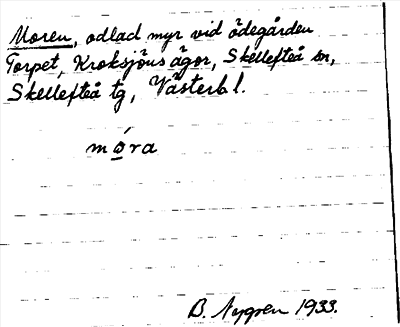 Moren, odlad myr vid ödegården
Torpet, Kroksjöns ägor, Skellefteå sn,
Skellefteå tg, Västerb l.
móra
B. Nygren 1933.